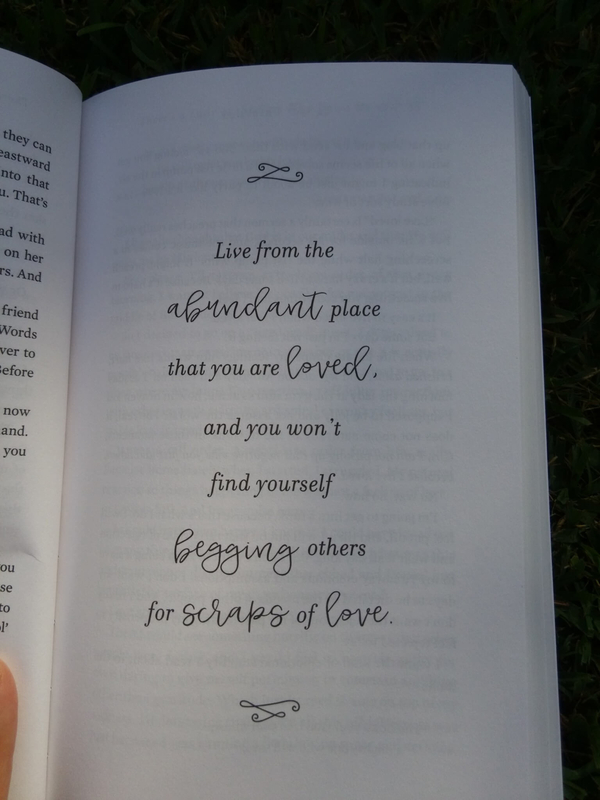 they can
eastward
nto that
u. That's
ad with
on her
rs. And
friend
Words
ver to
Before
now
and.
you
ou
se
to
ol'
Live from the
abundant place
that you are loved,
and you won't
find yourself
begging others
for scraps of love.